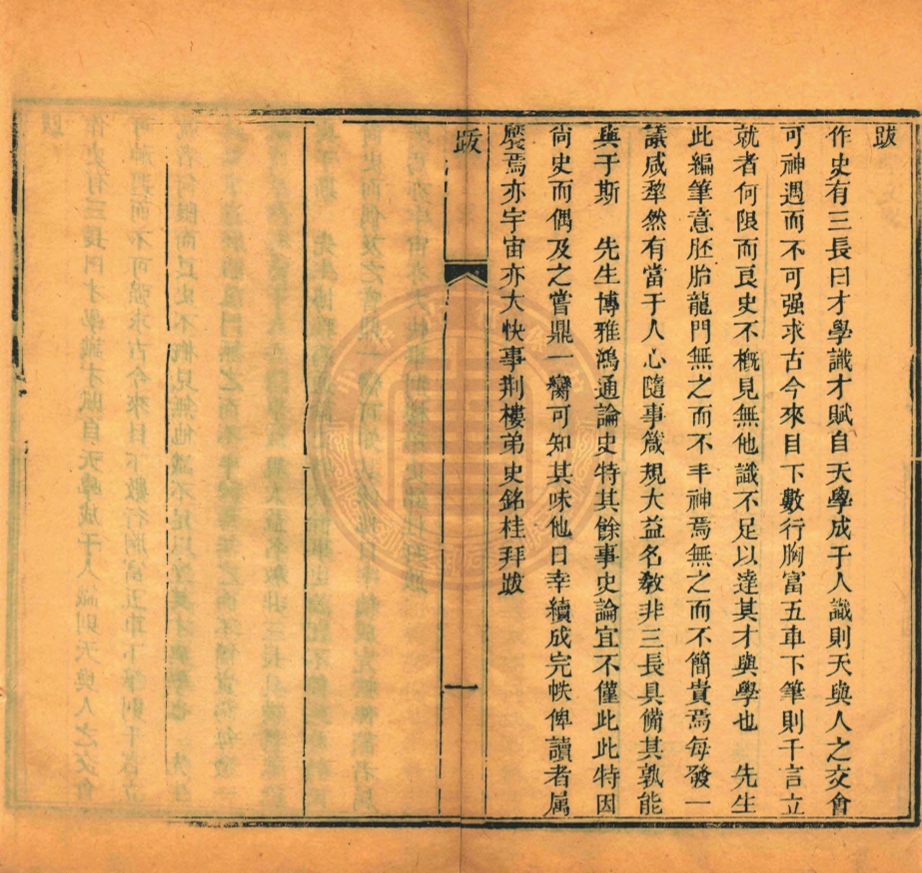 跋
作史有三長曰才學識才賦自天學成于人識則天與人之交會
可神遇而不可强求古今來目下數行胸富五車下筆則千言立
就者何限而良史不概見無他識不足以達其才與學也　先生
此編筆意胚胎龍門無之而不丰神焉無之而不簡貴焉每發一
議咸犂然有當于人心隨事箴規大益名敎非三長具備其孰能
與于斯　先生博雅鴻通論史特其餘事史論宜不僅此此特因
尙史而偶及之嘗鼎一臠可知其味他日幸續成完帙俾讀者属
饜焉亦宇宙亦大快事荆樓弟史銘桂拜跋
跋
一